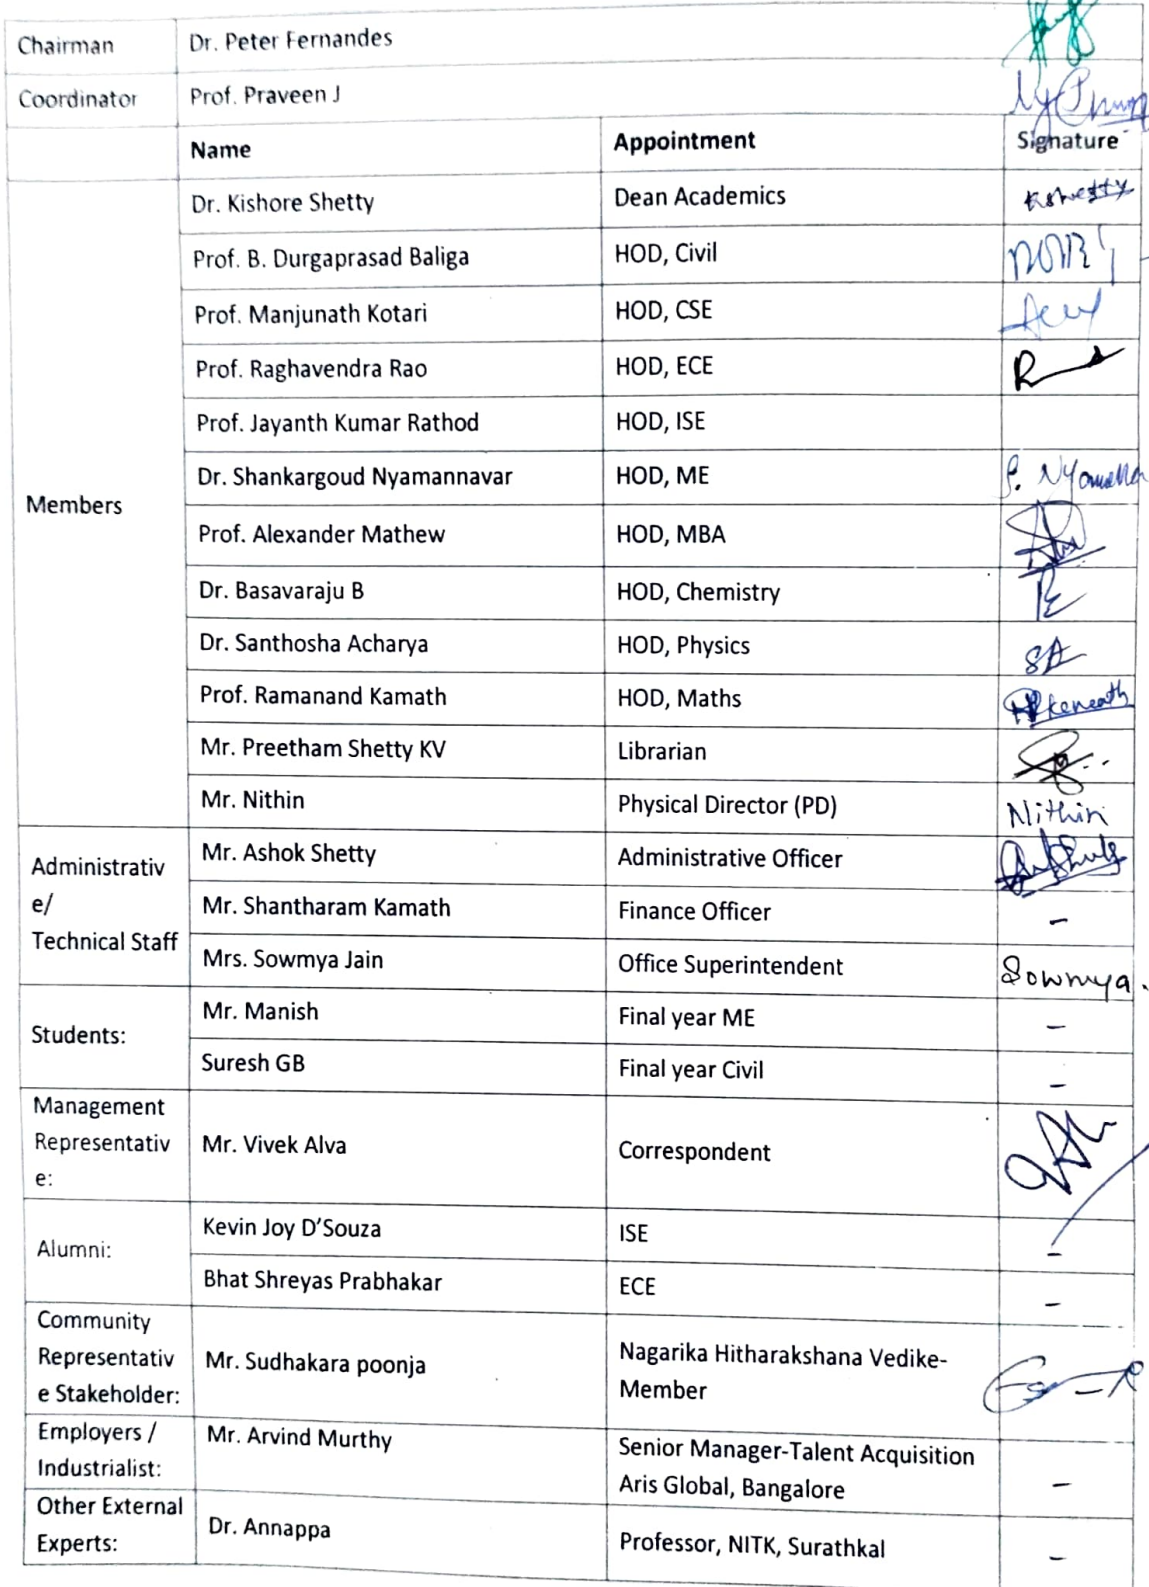 Chairman Dr. Peter Fernandes
Coordinator Prof. Praveen J
Name Appointment Signature
Dr. Kishore Shetty Dean Academics Kshetty
Prof. B. Durgaprasad Baliga HOD, Civil
Prof. Manjunath Kotari HOD, CSE
Prof. Raghavendra Rao HOD, ECE
Prof. Jayanth Kumar Rathod HOD, ISE
Members
Dr. Shankargoud Nyamannavar HOD, ME
Prof. Alexander Mathew HOD, MBA
Dr. Basavaraju B HOD, Chemistry
Dr. Santhosha Acharya HOD, Physics SA
Prof. Ramanand Kamath HOD, Maths
Mr. Preetham Shetty KV Librarian
Mr. Nithin Physical Director (PD) Nithin
Administrativ
e/
Technical Staff
Mr. Ashok Shetty Administrative Officer
Mr. Shantharam Kamath Finance Officer -
Mrs. Sowmya Jain Office Superintendent Sowmya.
Students:
Mr. Manish Final year ME -
Suresh GB Final year Civil -
Management
Representativ
e:
Mr. Vivek Alva Correspondent
Alumni:
Kevin Joy D'Souza ISE -
Bhat Shreyas Prabhakar ECE -
Community
Representativ
e Stakeholder:
Mr. Sudhakara poonja
Nagarika Hitharakshana Vedike-
Member
Employers /
Industrialist:
Mr. Arvind Murthy
Senior Manager-Talent Acquisition
Aris Global, Bangalore -
Other External
Experts:
Dr. Annappa Professor, NITK, Surathkal -